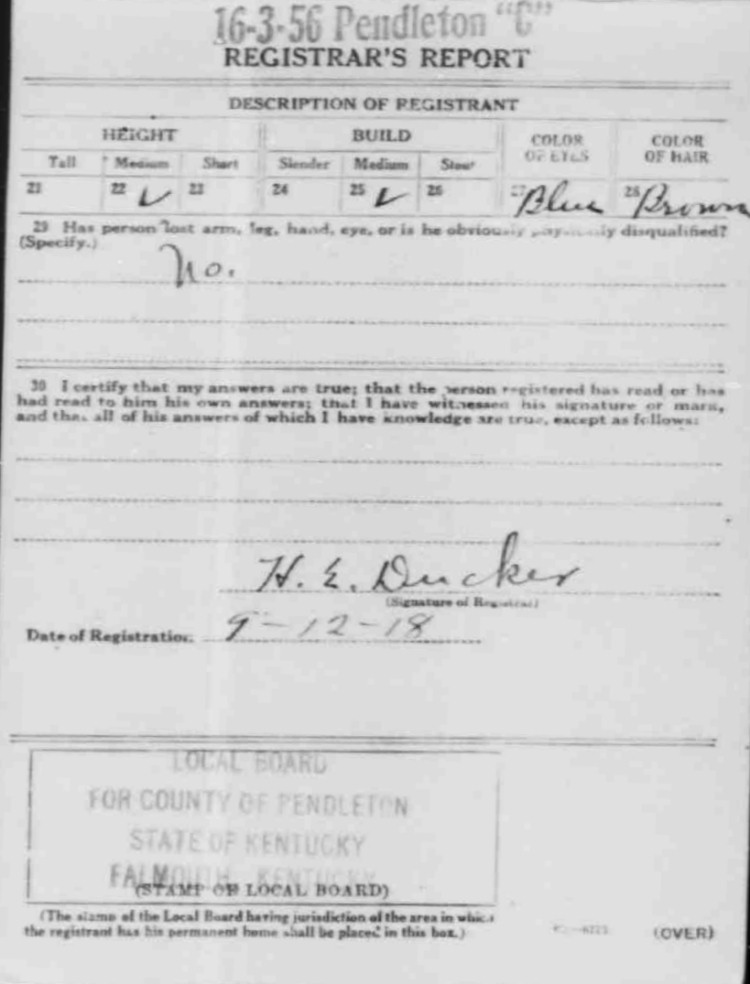 16-3-56 Pendleton "C"
REGISTRAR'S REPORT
DESCRIPTION OF REGISTRANT
HEIGHT BUILD COLOR OF EYES COLOR OF HAIR
Tall Medium Short Slender Medium Stout
21 22 ✓ 23 24 25 ✓ 26 27 Blue 28 Brown
29 Has person lost arm, leg, hand, eye, or is he obviously physically disqualified?
(Specify.)
No.
30 I certify that my answers are true; that the person registered has read or has
had read to him his own answers; that I have witnessed his signature or mark,
and that all of his answers of which I have knowledge are true, except as follows:
H. E. Ducker
(Signature of Registrar)
Date of Registration 9-12-18
LOCAL BOARD
FOR COUNTY OF PENDLETON
STATE OF KENTUCKY
FALMOUTH, KENTUCKY
(STAMP OF LOCAL BOARD)
(The stamp of the Local Board having jurisdiction of the area in which
the registrant has his permanent home shall be placed in this box.)
(OVER)